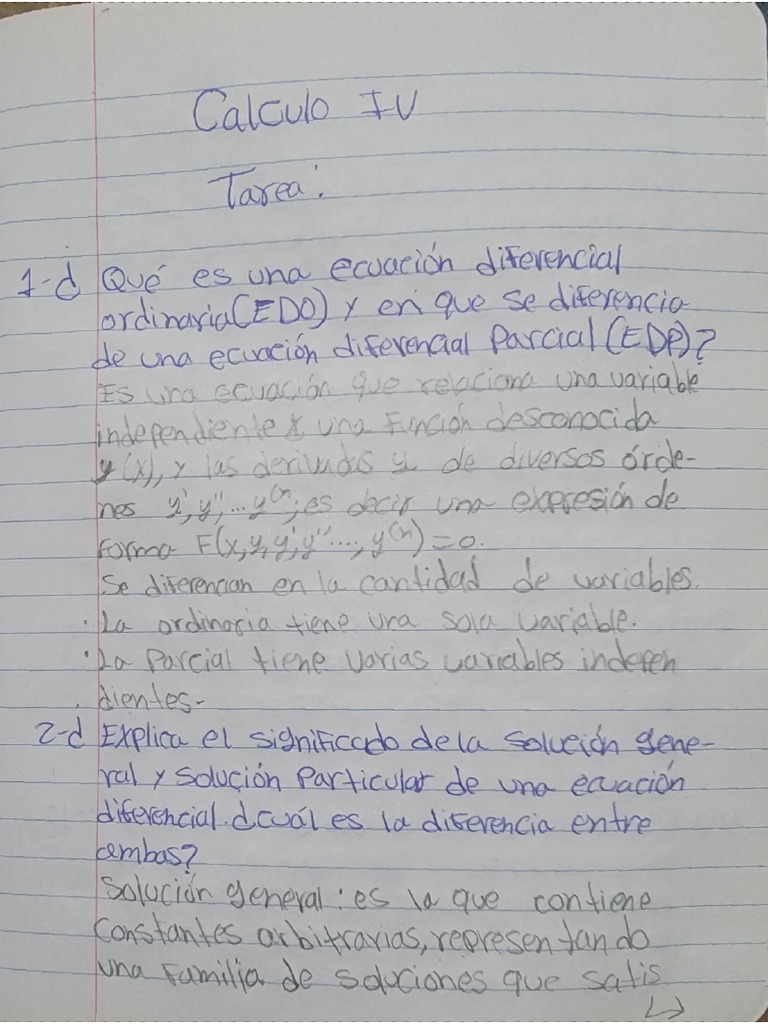 Calculo IV
Tarea:
1-d Qué es una ecuación diferencial
ordinaria (EDO) y en que se diferencia
de una ecuación diferencial Parcial (EDP)?
Es una ecuación que relaciona una variable
independiente x una función desconocida
y(x), y las derivadas y de diversos órde-
nes y', y'', ... y^(n); es decir una expresión de
forma F(x, y, y', y''..., y^(n)) = 0.
Se diferencian en la cantidad de variables.
· La ordinaria tiene una sola variable.
· La Parcial tiene varias variables indepen
dientes-
2-d Explica el significado de la solución gene-
ral y solución Particular de una ecuación
diferencial. d cuál es la diferencia entre
ambas?
Solución general: es la que contiene
Constantes arbitrarias, representando
una familia de soluciones que satis
↳